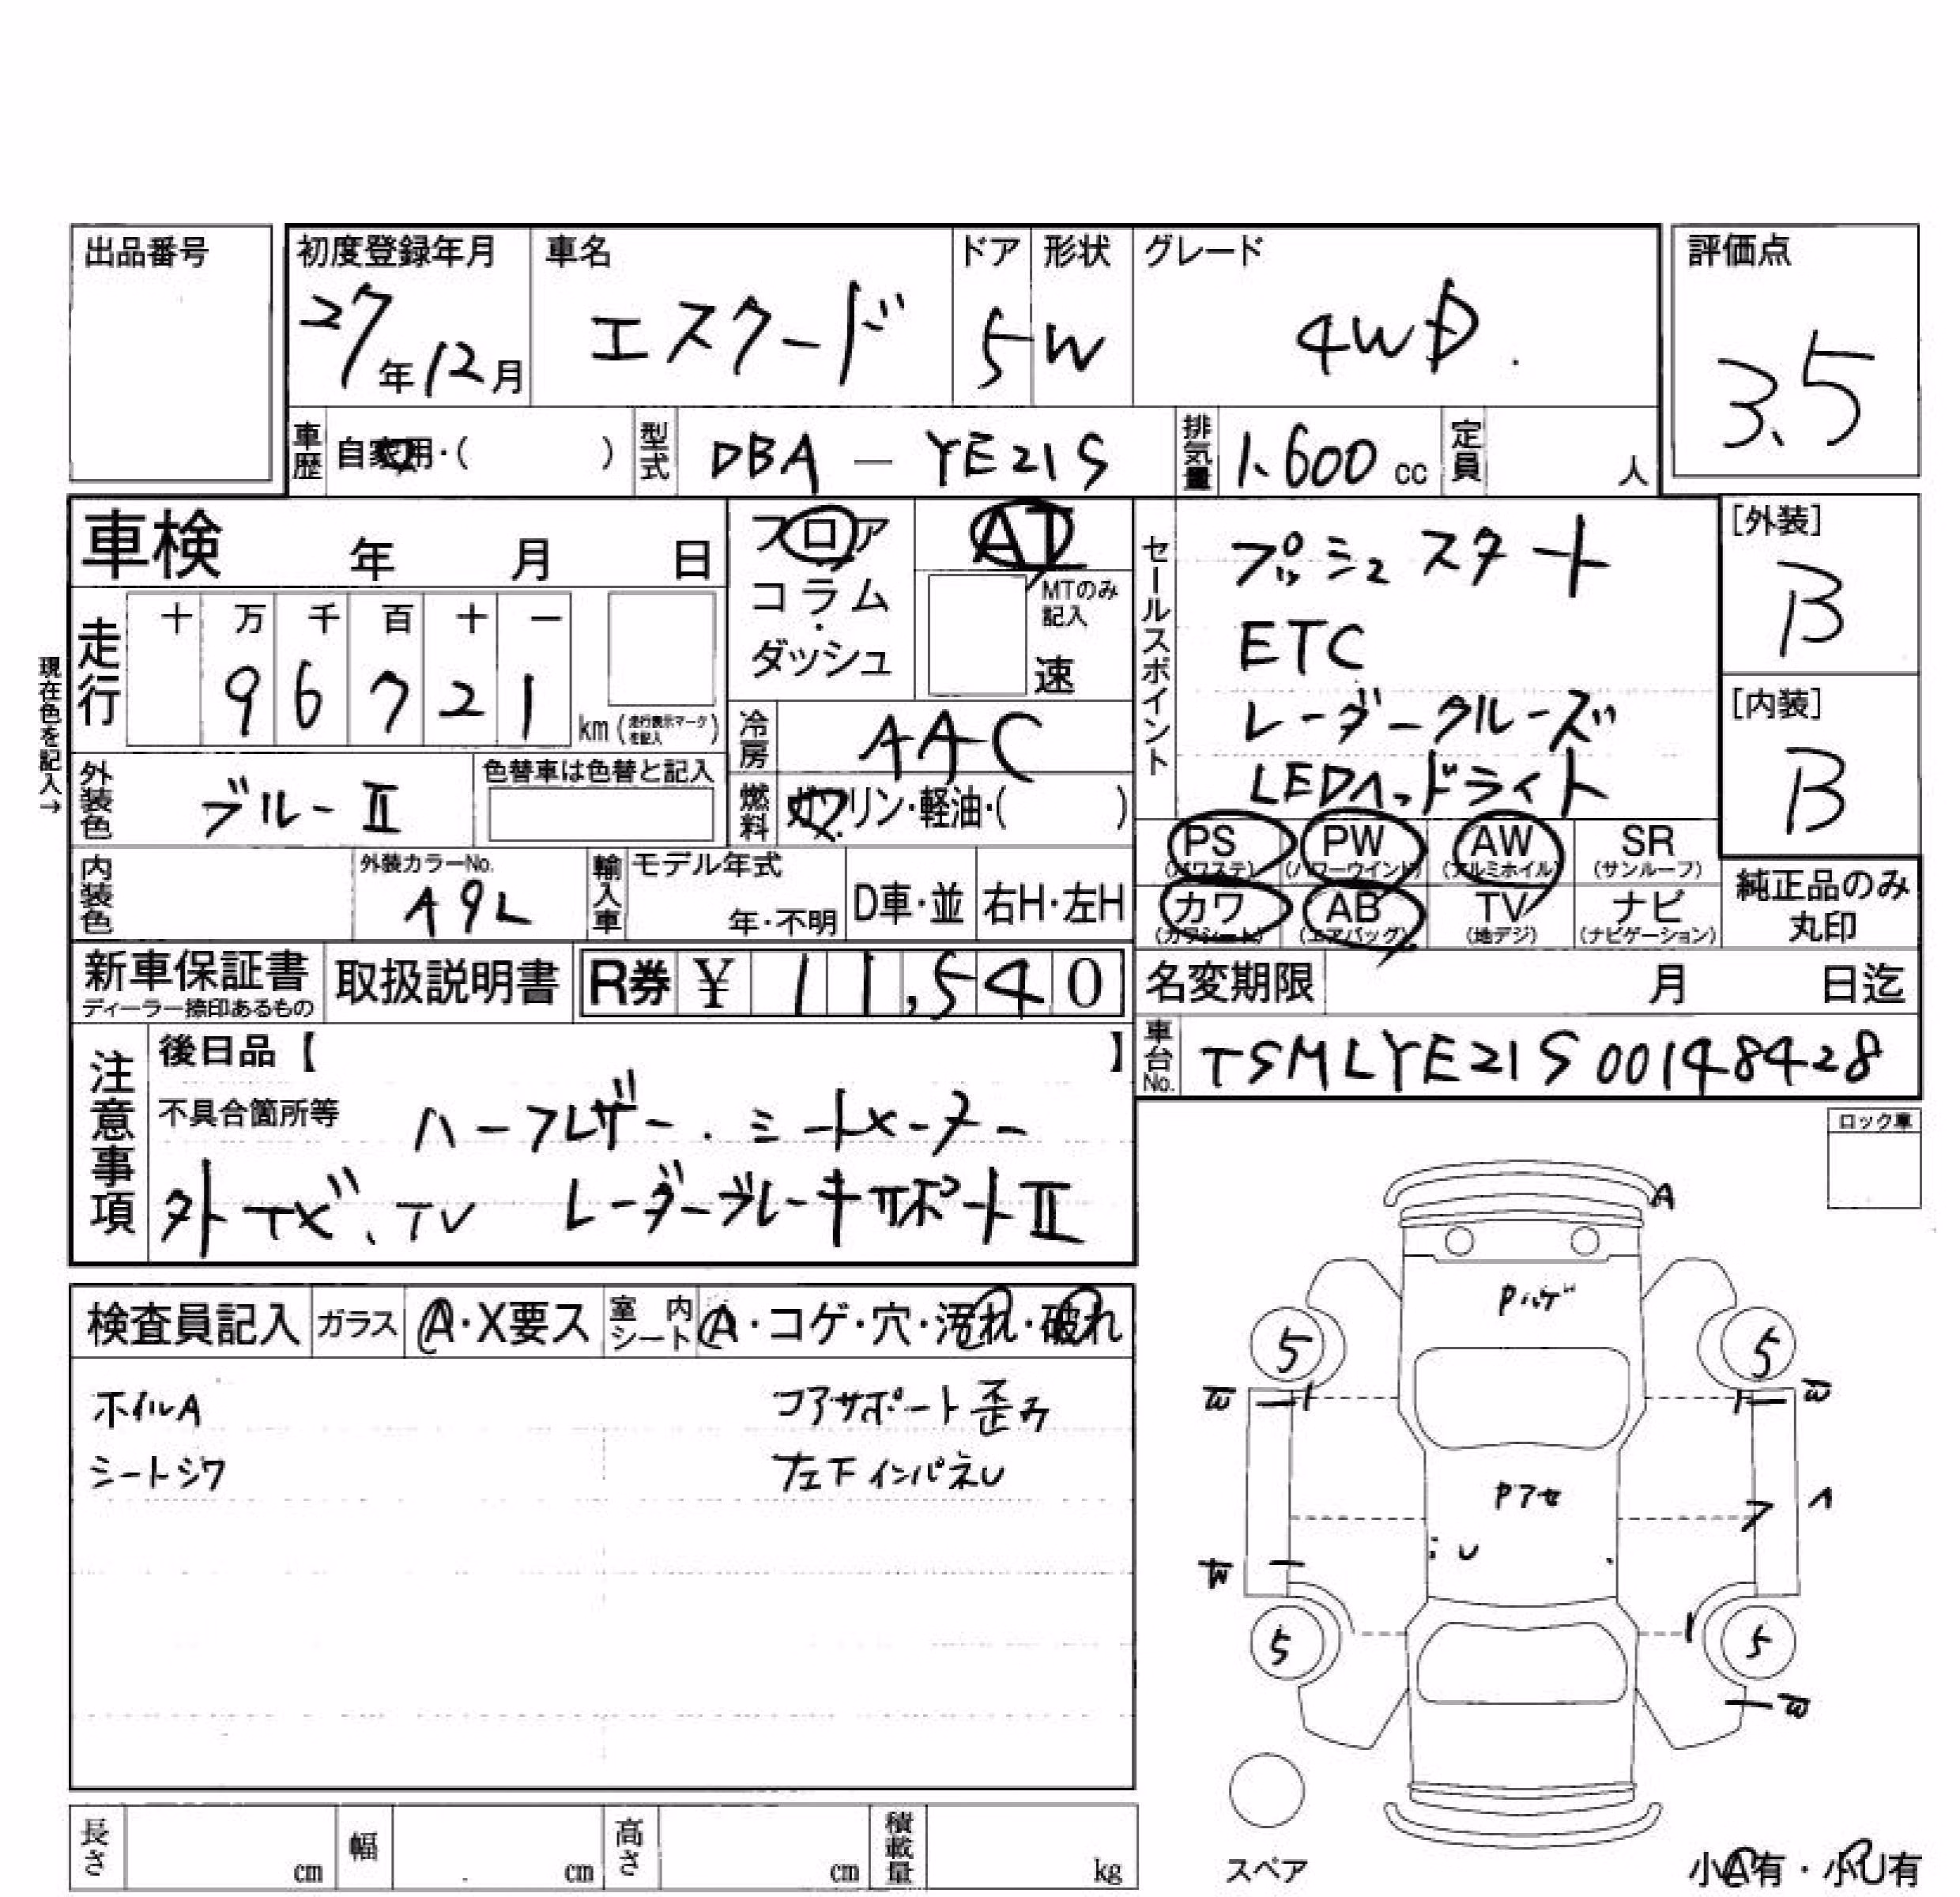 出品番号
初度登録年月 車名 ドア 形状 グレード 評価点
27年12月 エスクード 5 W 4WD. 3.5
車歴 自家用・( ) 型式 DBA — YE21S 排気量 1.600 cc 定員 人
車検 年 月 日
フロア AT
コラム MTのみ記入
ダッシュ 速
現在色を記入→
走行 十 万 千 百 十 一
9 6 7 2 1 km (走行表示マークを記入)
冷房 AAC
外装色 ブルーⅡ 色替車は色替と記入
燃料 ガソリン・軽油・( )
セールスポイント プッシュスタート
ETC
レーダークルーズ
LEDヘッドライト
[外装]
B
[内装]
B
内装色 外装カラーNo. A9L 輸入車 モデル年式 年・不明 D車・並 右H・左H
PS (パワステ) PW (パワーウインド) AW (アルミホイル) SR (サンルーフ)
カワ (カワシート) AB (エアバッグ) TV (地デジ) ナビ (ナビゲーション)
純正品のみ
丸印
新車保証書 取扱説明書 R券 ¥ 11,540
ディーラー捺印あるもの
名変期限 月 日迄
車台No. TSMLYE21S00148428
注意事項 後日品【 】
不具合箇所等 ハーフレザー.シートメーター
TV レーダーブレーキサポートⅡ
ロック車
検査員記入 ガラス A・X要ス 室内シート A・コゲ・穴・汚れ・破れ
ホイルA コアサポート歪み
シートシワ 左下インパネU
A
Pハゲ
5 5
W W
Pアセ
U
W
5 5
W
スペア
小A有・小U有
長さ cm 幅 cm 高さ cm 積載量 kg